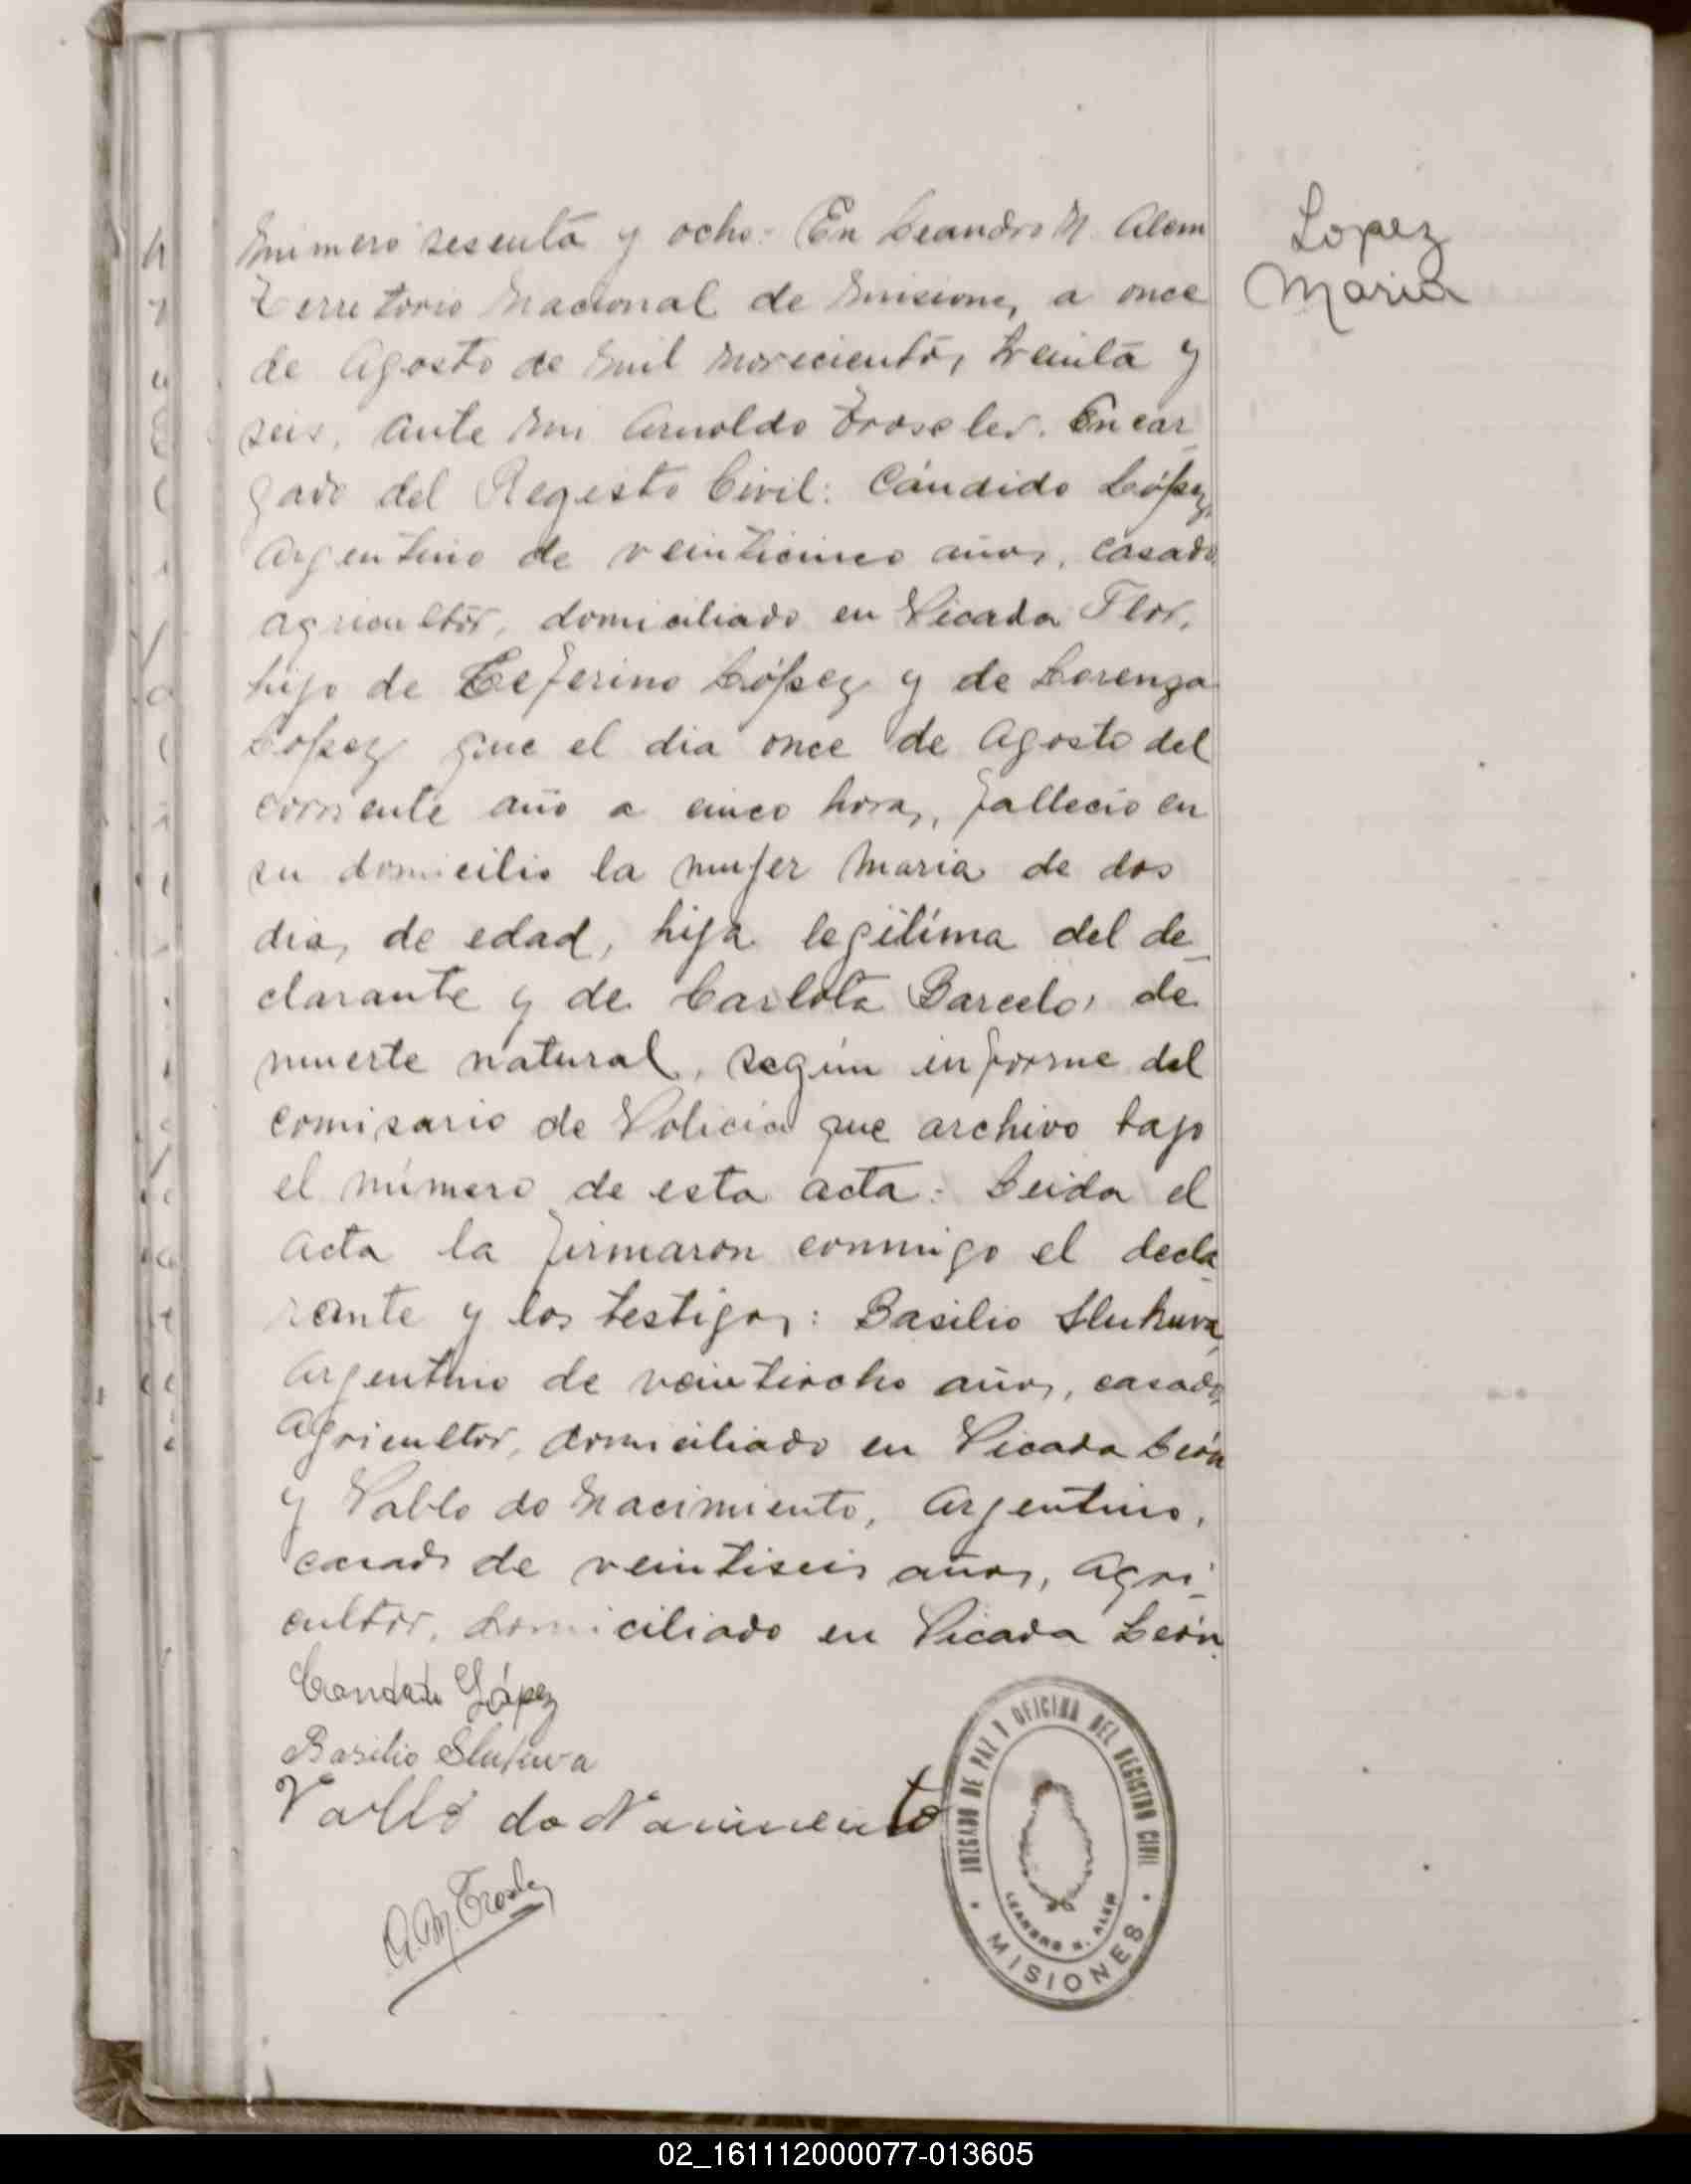 Lopez
Maria
Número sesenta y ocho: En Leandro N. Alem
Territorio Nacional de Misiones, a once
de Agosto de mil novecientos treinta y
seis, ante mi Arnoldo Troseler. Encar-
gado del Registo Civil: Cándido López,
Argentino de veinticinco años, casado
agricultor, domiciliado en Picada Flor,
hijo de Ceferino López y de Lorenza
López que el dia once de Agosto del
corriente año a cinco horas, fallecio en
su domicilio la mujer Maria de dos
dias de edad, hija legítima del de-
clarante y de Carlota Barcelo, de
muerte natural, según informe del
comisario de Policia que archivo bajo
el número de esta acta: Leida el
acta la firmaron conmigo el decla-
rante y los testigos: Basilio Slukuva,
Argentino de veintiocho años, casado,
Agricultor, domiciliado en Picada León
y Pablo do Nacimiento, Argentino,
casado de veintiseis años, Agri-
cultor, domiciliado en Picada León.
Candido López
Basilio Slukuva
Pablo do Nacimento
A. M. Trosler
JUZGADO DE PAZ Y OFICINA DEL REGISTRO CIVIL
LEANDRO N. ALEM
MISIONES
02_161112000077-013605